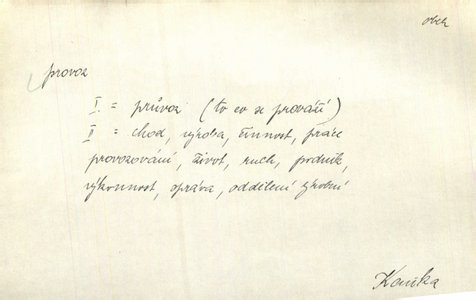 obch
provoz
I. = průvoz (to co se prováží)
II = chod, výroba, činnost, práce
provozování, život, ruch, podnik,
výkonnost, správa, oddělení výrobní